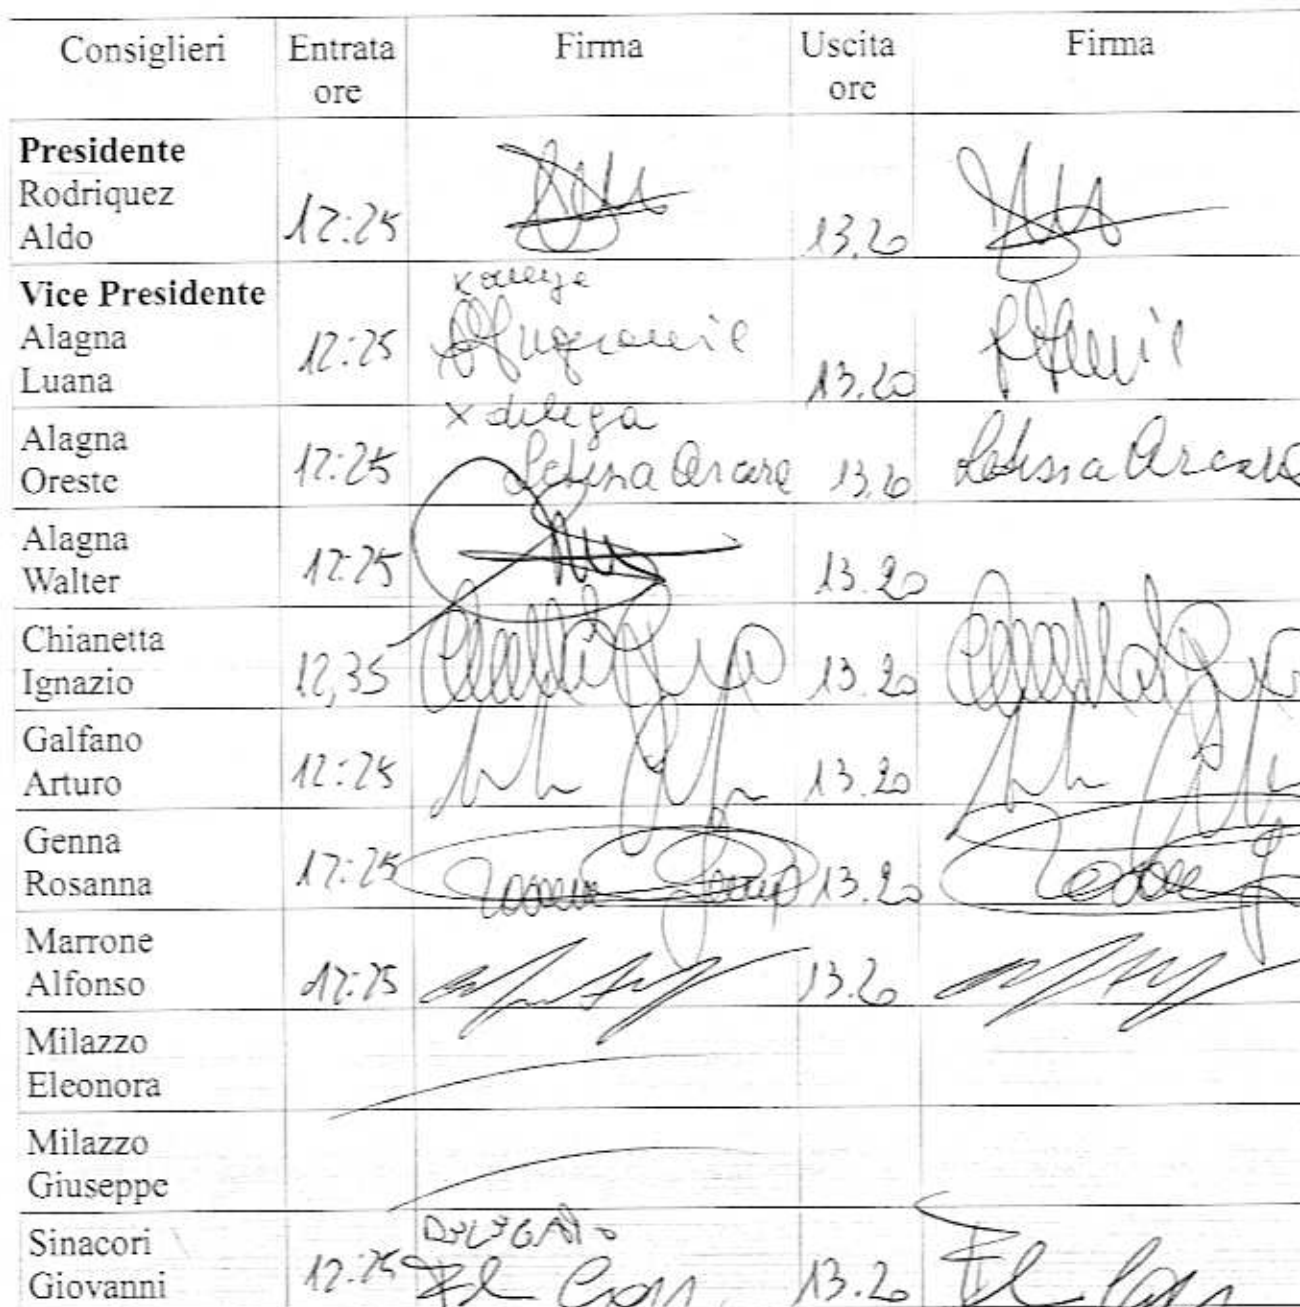 Consiglieri Entrata Firma Uscita Firma
ore ore
Presidente
Rodriquez
Aldo 12:25 13.20
Vice Presidente x delega
Alagna
Luana 12:25 13.20
Alagna x delega
Oreste 12:25 Letizia Arcara 13.20 Letizia Arcara
Alagna
Walter 12:25 13.20
Chianetta
Ignazio 12,35 13.20
Galfano
Arturo 12:25 13.20
Genna
Rosanna 12:25 13.20
Marrone
Alfonso 12:25 13.20
Milazzo
Eleonora
Milazzo
Giuseppe
Sinacori DELEGATO
Giovanni 12:25 13.20